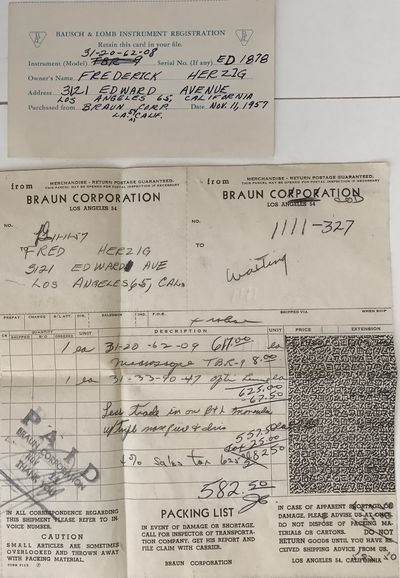 BAUSCH & LOMB INSTRUMENT REGISTRATION
Retain this card in your file.
31-20-62-08
Instrument (Model) TBR-9 Serial No. (If any) ED 1878
Owner's Name FREDERICK HERZIG
Address 3121 EDWARD AVENUE
LOS ANGELES 65, CALIFORNIA
Purchased from BRAUN CORP. Date NOV. 11, 1957
LA CALIF.
from MERCHANDISE - RETURN POSTAGE GUARANTEED.
THIS PARCEL MAY BE OPENED FOR POSTAL INSPECTION IF NECESSARY
BRAUN CORPORATION
LOS ANGELES 54
NO.
TO FRED HERZIG
3121 EDWARD AVE
LOS ANGELES 65, CAL.
from MERCHANDISE - RETURN POSTAGE GUARANTEED.
THIS PARCEL MAY BE OPENED FOR POSTAL INSPECTION IF NECESSARY
BRAUN CORPORATION
LOS ANGELES 54
NO.
1111-327
TO
Waiting
PREPAY CHARGE SALESMAN F.O.B. SHIPPED VIA WHEN SHIP
QUANTITY
SHIPPED B/O ORDERED UNIT DESCRIPTION UNIT PRICE EXTENSION
1 ea 31-20-62-09 617.00 ea
Microscope TBR-9 8.00
1 ea 31-33-90-47 ea
625.00
-67.50
Less trade in on B+L
557.50
25.00
4% Sales tax
582.50
PAID
BRAUN CORPORATION
THANK YOU
IN ALL CORRESPONDENCE REGARDING
THIS SHIPMENT PLEASE REFER TO IN-
VOICE NUMBER.
CAUTION
SMALL ARTICLES ARE SOMETIMES
OVERLOOKED AND THROWN AWAY
WITH PACKING MATERIAL.
PACKING LIST
IN EVENT OF DAMAGE OR SHORTAGE,
CALL FOR INSPECTOR OF TRANSPORTA-
TION COMPANY. GET HIS REPORT AND
FILE CLAIM WITH CARRIER.
BRAUN CORPORATION
IN CASE OF APPARENT SHORTAGE OR
DAMAGE, PLEASE ADVISE US AT ONCE.
DO NOT DISPOSE OF PACKING MA-
TERIALS OR CARTONS. DO NOT
RETURN GOODS UNTIL YOU HAVE RE-
CEIVED SHIPPING ADVICE FROM US.
LOS ANGELES 54, CALIFORNIA